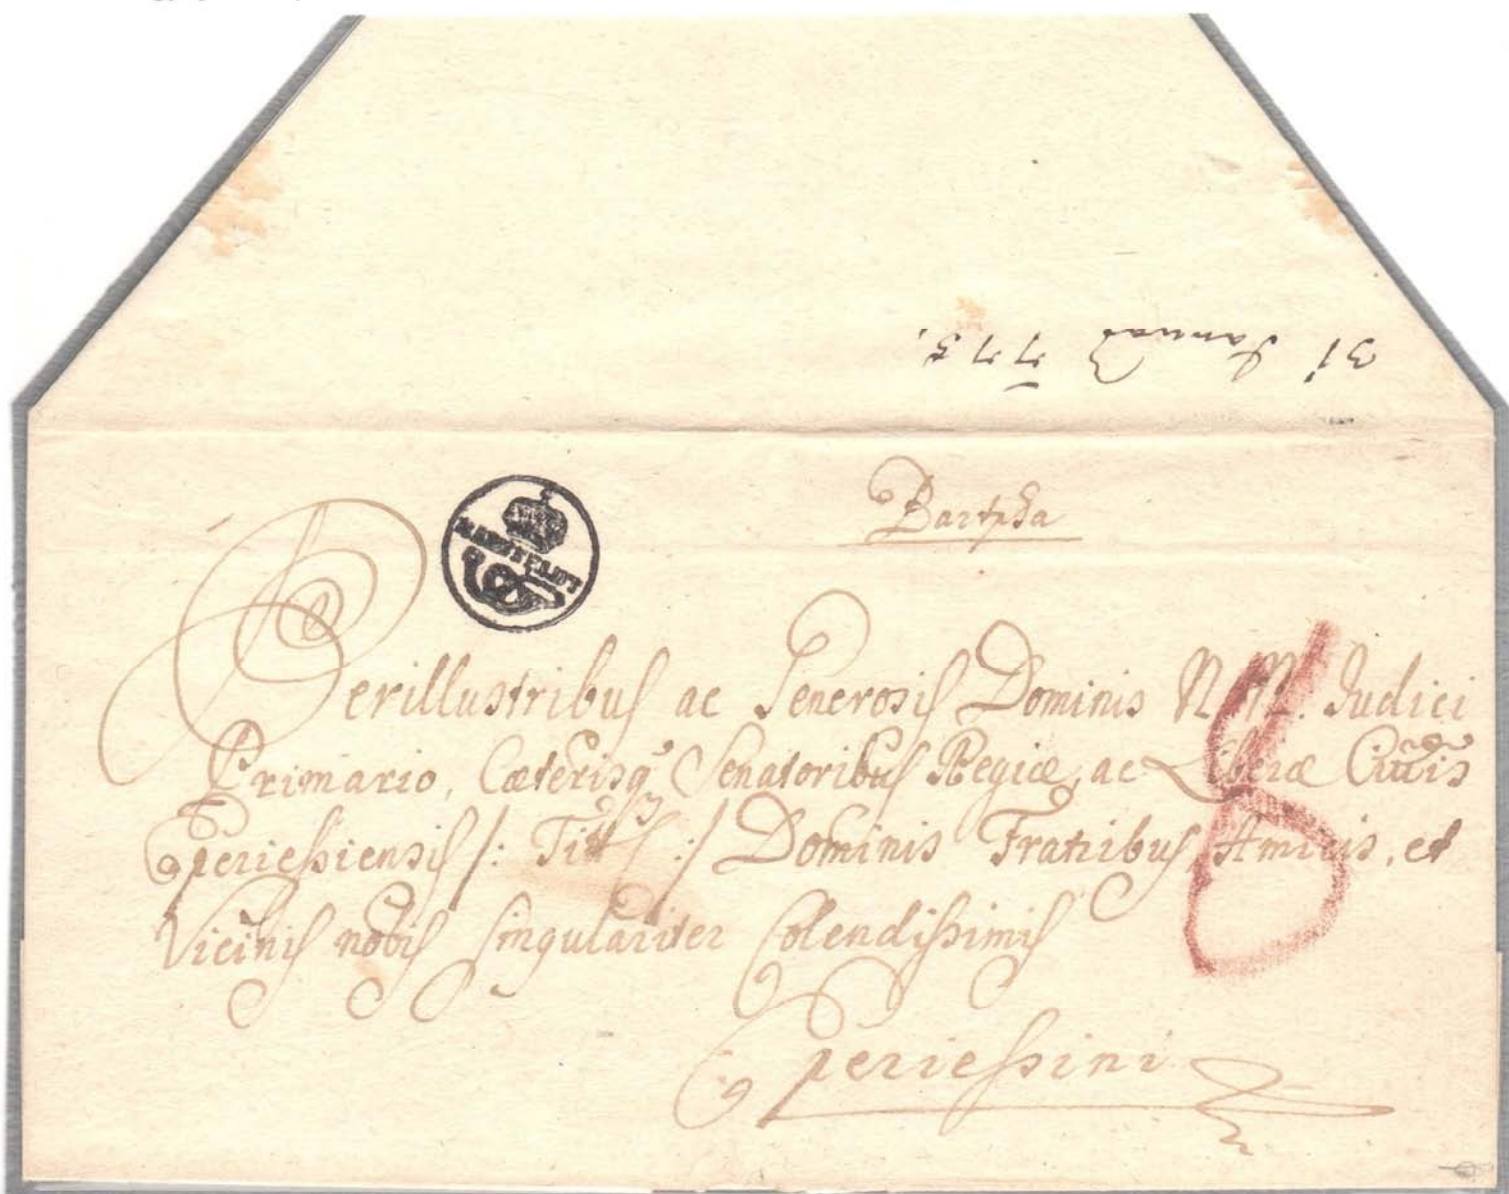 31 Januar 773.
Bartpha
BARTFELDT
Perillustribus ac Generosis Dominis N.N. Judici
Primario, Cæterisq̃ Senatoribus Regiæ, ac Liberæ Cittis
Eperiessiensis /: Titt :/ Dominis Fratribus, Amicis, et
Vicinis nobis Singulariter Colendissimis
Eperiessini
8